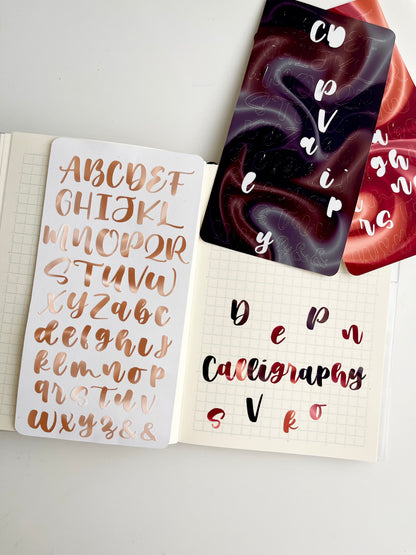 ABCDEF
GHIJKL
MNOPQR
STUVW
XYZabc
defghij
klmnop
qrstuv
wxyz&&
CD
p
V
a
i
e
p
y
a
g
h
n
r
s
D e P n
Calligraphy
s V k o